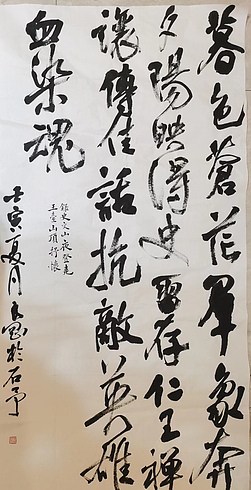 暮色蒼茫羣象奔
夕陽映得史留存仁王禪
讓傳佳話抗敵英雄
血染魂
錄史文山夜登堯
王臺山頂抒懷
壬寅夏月於石予